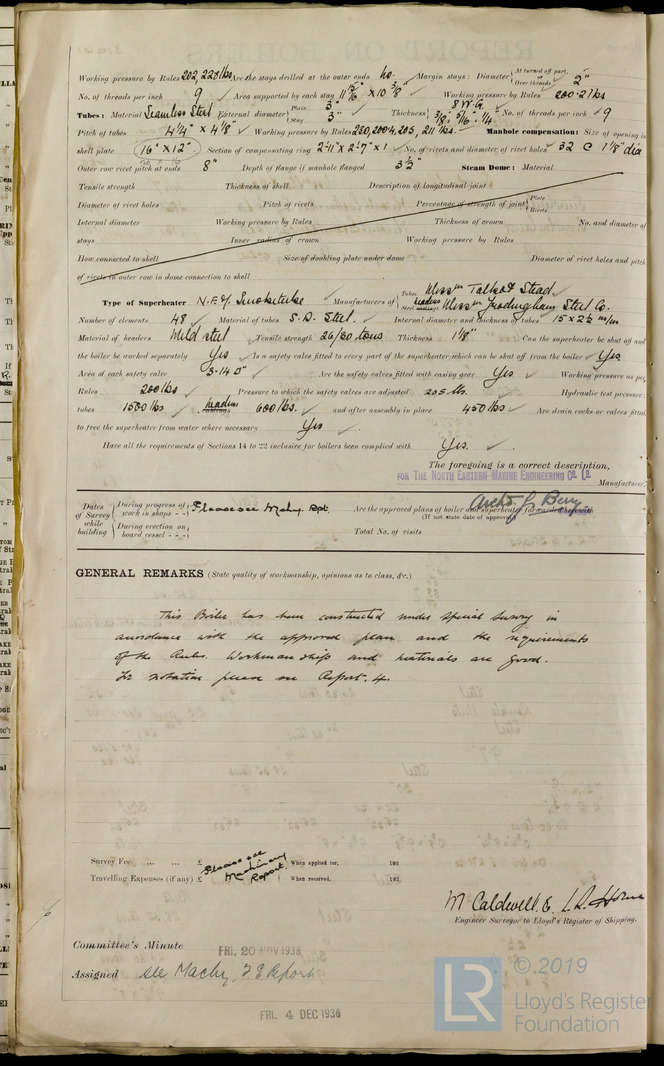 Working pressure by Rules 202, 228 lbs. Are the stays drilled at the outer ends No. Margin stays: Diameter { At turned off part, or Over threads 2"
No. of threads per inch 9 Area supported by each stay 11 5/16" × 10 3/8" Working pressure by Rules 200.2 lbs
Tubes: Material Seamless Steel External diameter { Plain 3" Stay 3" Thickness { 8 W.G. 3/8", 5/16", 1/4" No. of threads per inch 9
Pitch of tubes 4 1/4" × 4 1/8" Working pressure by Rules 230, 200.4, 205, 211 lbs. Manhole compensation: Size of opening in
shell plate 16" × 12" Section of compensating ring 2'-11" × 2'-7" × 1 No. of rivets and diameter of rivet holes 32 @ 1 1/8" dia
Outer row rivet pitch at ends 8" Depth of flange if manhole flanged 3 1/2" Steam Dome: Material
Tensile strength Thickness of shell Description of longitudinal joint
Diameter of rivet holes Pitch of rivets Percentage of strength of joint { Plate Rivets
Internal diameter Working pressure by Rules Thickness of crown No. and diameter of
stays Inner radius of crown Working pressure by Rules
How connected to shell Size of doubling plate under dome Diameter of rivet holes and pitch
of rivets in outer row in dome connection to shell
Type of Superheater N.E. Smoketube Manufacturers of { Tubes Messrs Talbot Stead Steel headers Messrs Frodingham Steel Co.
Number of elements 48 Material of tubes S.D. Steel. Internal diameter and thickness of tubes 15 × 2½ m/m
Material of headers Mild steel Tensile strength 26/30 tons Thickness 1 1/8" Can the superheater be shut off and
the boiler be worked separately Yes Is a safety valve fitted to every part of the superheater which can be shut off from the boiler Yes
Area of each safety valve 3.14 □" Are the safety valves fitted with easing gear Yes Working pressure as per
Rules 200 lbs Pressure to which the safety valves are adjusted 205 lbs. Hydraulic test pressure:
tubes 1500 lbs headers 600 lbs. and after assembly in place 450 lbs Are drain cocks or valves fitted
to free the superheater from water where necessary Yes
Have all the requirements of Sections 14 to 22 inclusive for boilers been complied with Yes.
The foregoing is a correct description,
FOR THE NORTH EASTERN MARINE ENGINEERING CO. LD. Manufacturer.
Archd. J. Berry
Dates of Survey while building { During progress of work in shops - - } Please see Mchy. Rpt. Are the approved plans of boiler and superheater forwarded herewith
(If not state date of approval.)
{ During erection on board vessel - - - } Total No. of visits
GENERAL REMARKS (State quality of workmanship, opinions as to class, &c.)
This Boiler has been constructed under special survey in
accordance with the approved plan and the requirements
of the Rules. Workmanship and materials are good.
For notation please see Report 4.
Survey Fee ... ... £ Please see Machinery Report When applied for, 192
Travelling Expenses (if any) £ When received, 192
M Caldwell &
Engineer Surveyor to Lloyd's Register of Shipping.
Committee's Minute FRI. 20 NOV 1936
Assigned see Machy. F.E. Report
FRI. 4 DEC 1936
LR © 2019
Lloyd's Register
Foundation